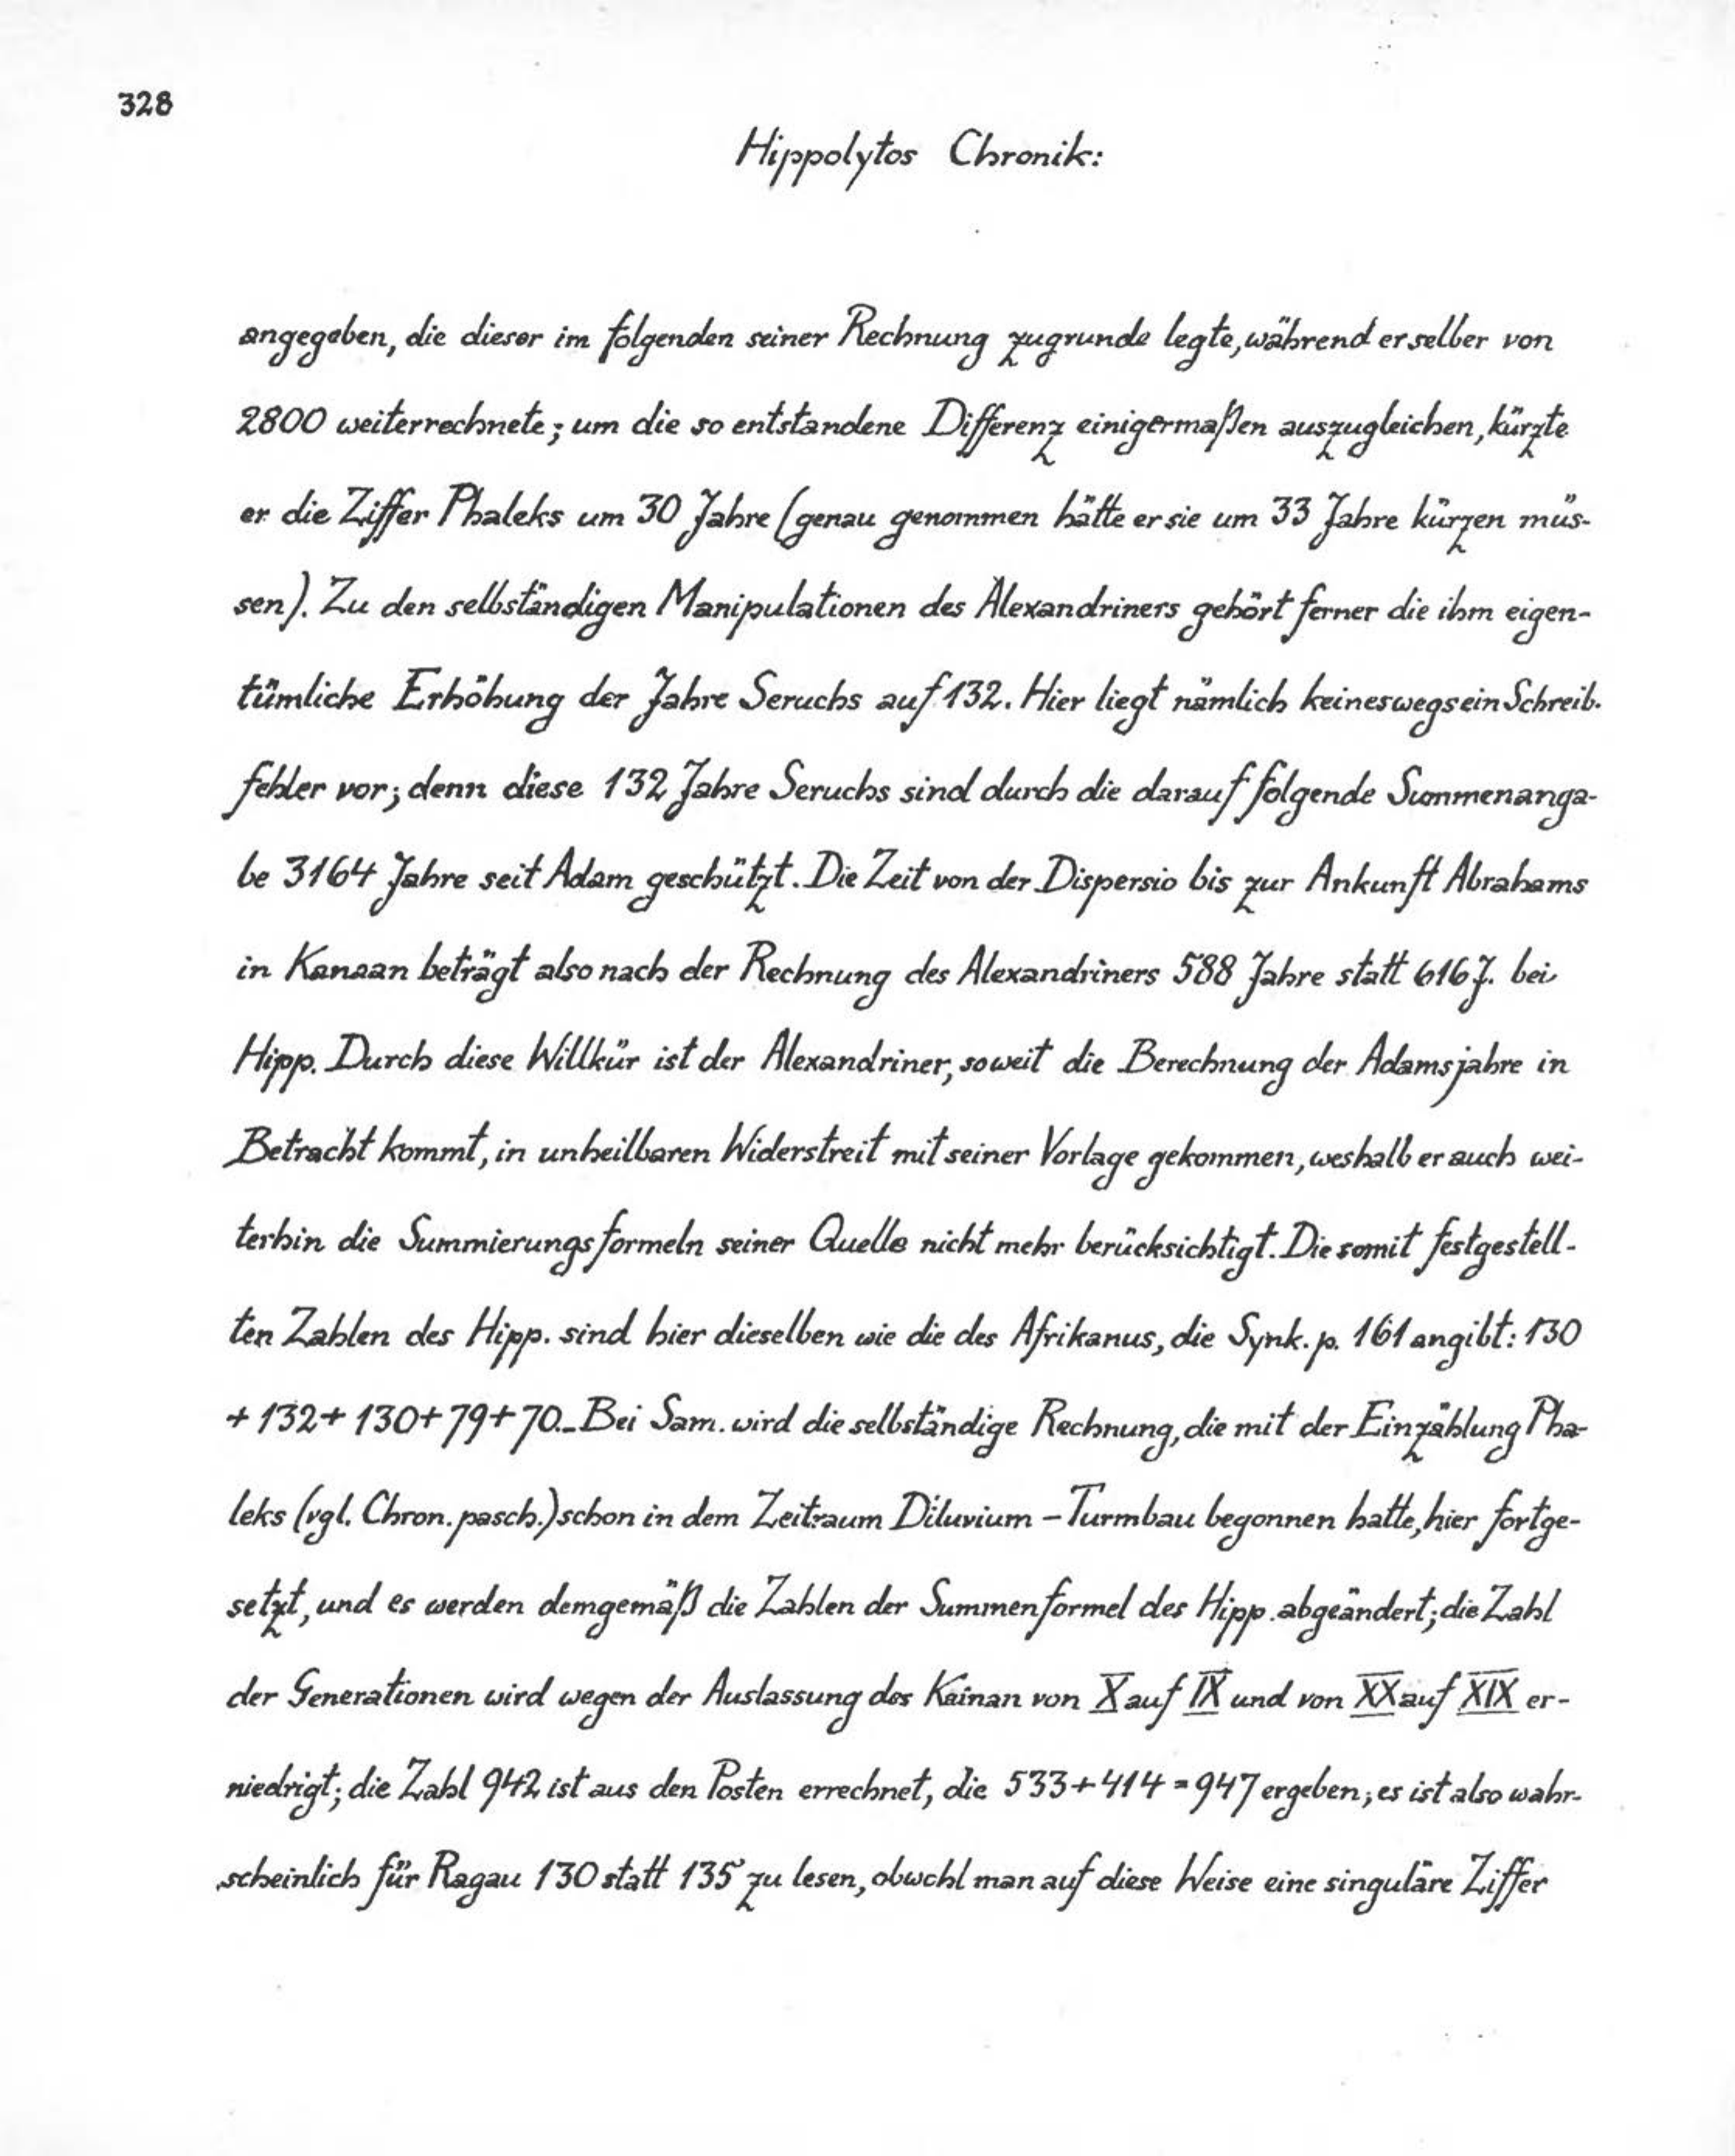 328
Hippolytos Chronik:
angegeben, die dieser im folgenden seiner Rechnung zugrunde legte, während er selber von
2800 weiterrechnete; um die so entstandene Differenz einigermaßen auszugleichen, kürzte
er die Ziffer Phaleks um 30 Jahre (genau genommen hätte er sie um 33 Jahre kürzen müs-
sen). Zu den selbständigen Manipulationen des Alexandriners gehört ferner die ihm eigen-
tümliche Erhöhung der Jahre Seruchs auf 132. Hier liegt nämlich keineswegs ein Schreib-
fehler vor; denn diese 132 Jahre Seruchs sind durch die darauf folgende Summenanga-
be 3164 Jahre seit Adam geschützt. Die Zeit von der Dispersio bis zur Ankunft Abrahams
in Kanaan beträgt also nach der Rechnung des Alexandriners 588 Jahre statt 616 J. bei
Hipp. Durch diese Willkür ist der Alexandriner, soweit die Berechnung der Adamsjahre in
Betracht kommt, in unheilbaren Widerstreit mit seiner Vorlage gekommen, weshalb er auch wei-
terhin die Summierungsformeln seiner Quelle nicht mehr berücksichtigt. Die somit festgestell-
ten Zahlen des Hipp. sind hier dieselben wie die des Afrikanus, die Synk. p. 161 angibt: 130
+ 132 + 130 + 79 + 70. – Bei Sam. wird die selbständige Rechnung, die mit der Einzählung Pha-
leks (vgl. Chron. pasch.) schon in dem Zeitraum Diluvium – Turmbau begonnen hatte, hier fortge-
setzt, und es werden demgemäß die Zahlen der Summenformel des Hipp. abgeändert; die Zahl
der Generationen wird wegen der Auslassung des Kainan von X auf IX und von XX auf XIX er-
niedrigt; die Zahl 942 ist aus den Posten errechnet, die 533 + 414 = 947 ergeben; es ist also wahr-
scheinlich für Ragau 130 statt 135 zu lesen, obwohl man auf diese Weise eine singuläre Ziffer